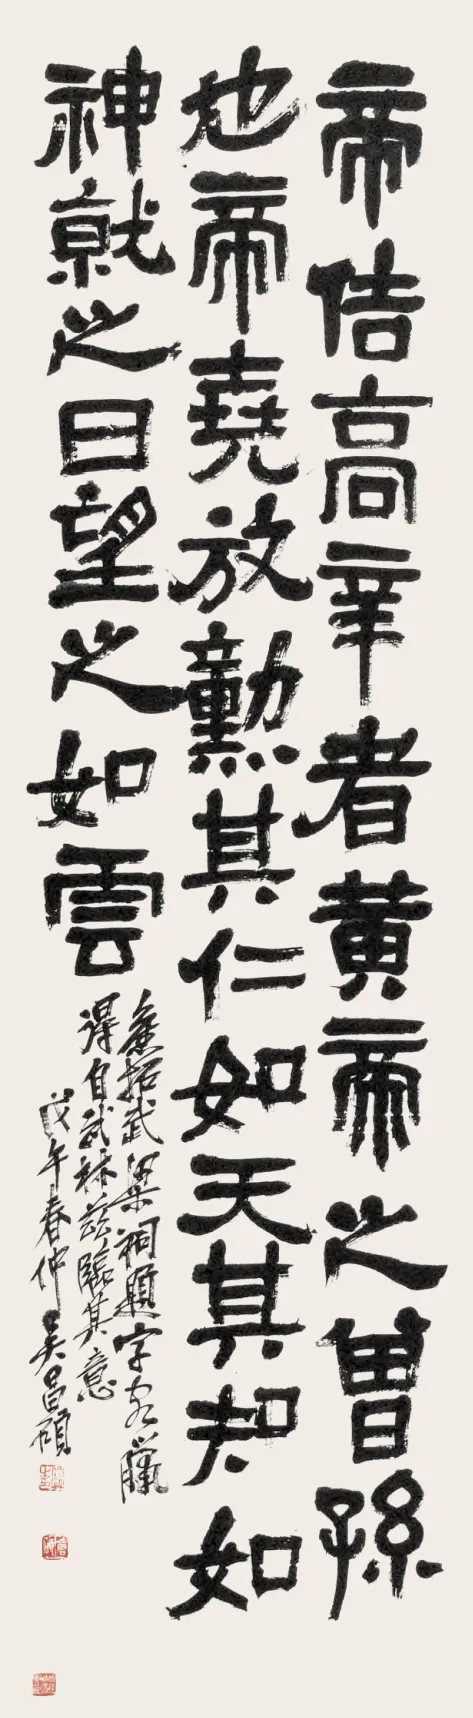 帝佶高辛者黄帝之曾孫
也帝堯放勳其仁如天其知如
神就之日望之如雲
拓武梁祠題字
得自武林茲臨其意
戊午春仲吳昌碩